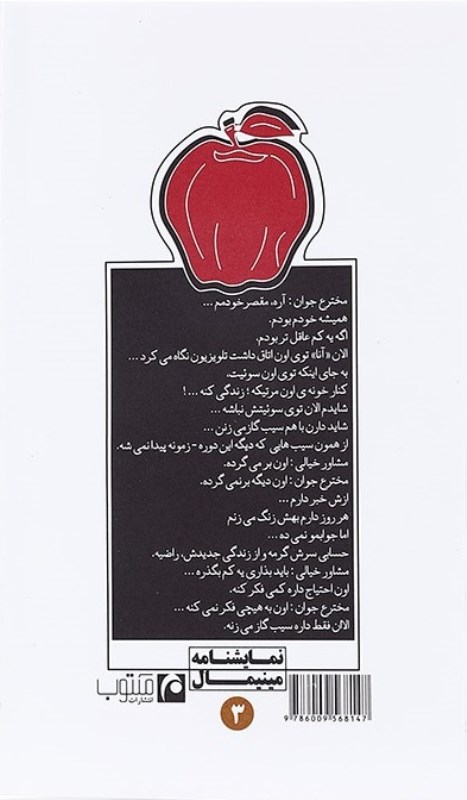 مخترع جوان : آره، مقصر خودمم ...
همیشه خودم بودم.
اگه یه کم عاقل تر بودم،
الان «آنا» توی اون اتاق داشت تلویزیون نگاه می کرد ...
به جای اینکه توی اون سوئیت،
کنار خونه ی اون مرتیکه ؛ زندگی کنه ... !
شایدم الان توی سوئیتش نباشه ...
شاید دارن با هم سیب گاز می زنن ...
از همون سیب هایی که دیگه این دوره - زمونه پیدا نمی شه.
مشاور خیالی : اون بر می گرده.
مخترع جوان : اون دیگه برنمی گرده.
ازش خبر دارم ...
هر روز دارم بهش زنگ می زنم
اما جوابمو نمی ده ...
حسابی سرش گرمه و از زندگی جدیدش، راضیه.
مشاور خیالی : باید بذاری یه کم بگذره ...
اون احتیاج داره کمی فکر کنه.
مخترع جوان : اون به هیچی فکر نمی کنه ...
الان فقط داره سیب گاز می زنه.
نمایشنامه
مینیمال
۳
انتشارات
مکتوب
9 786009 568147